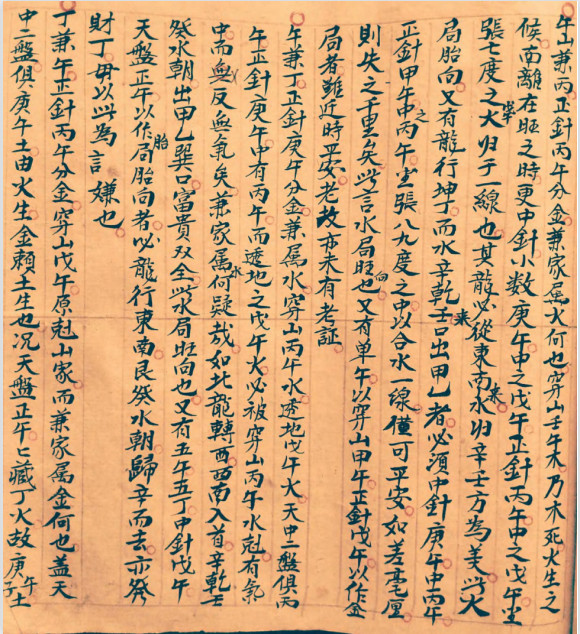 午山兼丙正針丙午分金兼家属火何也穿山壬午木乃木死火生之
候南離在旺之時更中針小数庚午中之戊午正針丙午中之戊午坐
張七度之火归于一線也其龍必從東南來水归辛壬方為美此火
局胎向又有龍行坤丁而水辛乾壬口出甲乙者必須中針庚午中丙午
正針甲午中之丙午坐張八九度之中以合水一線僅可平安如差毫厘
則失之千里矣此言水局旺向也又有单午以穿山甲午正針戊午以作金
局者雖近時平安老故亦未有考証
午兼丁正針庚午分金兼属水穿山丙午水透地戊午火天中二盤俱丙
午正針庚午中有丙午而透地之戊午火必被穿山丙午水尅有氣
中而無反無氣矣兼家属水何疑哉如此龍轉酉西南入首辛乾壬
癸水朝出甲乙巽口富貴双全此水局旺向也又有五午五丁中針戊午
天盤正午以作局胎向者必龍行東南艮癸水朝歸辛而去亦発
財丁毋以此為言嫌也
丁兼午正針丙午分金穿山戊午原尅山家而兼家属金何也盖天
中二盤俱庚午土由火生金賴土生也况天盤正午匕藏丁火故庚午土